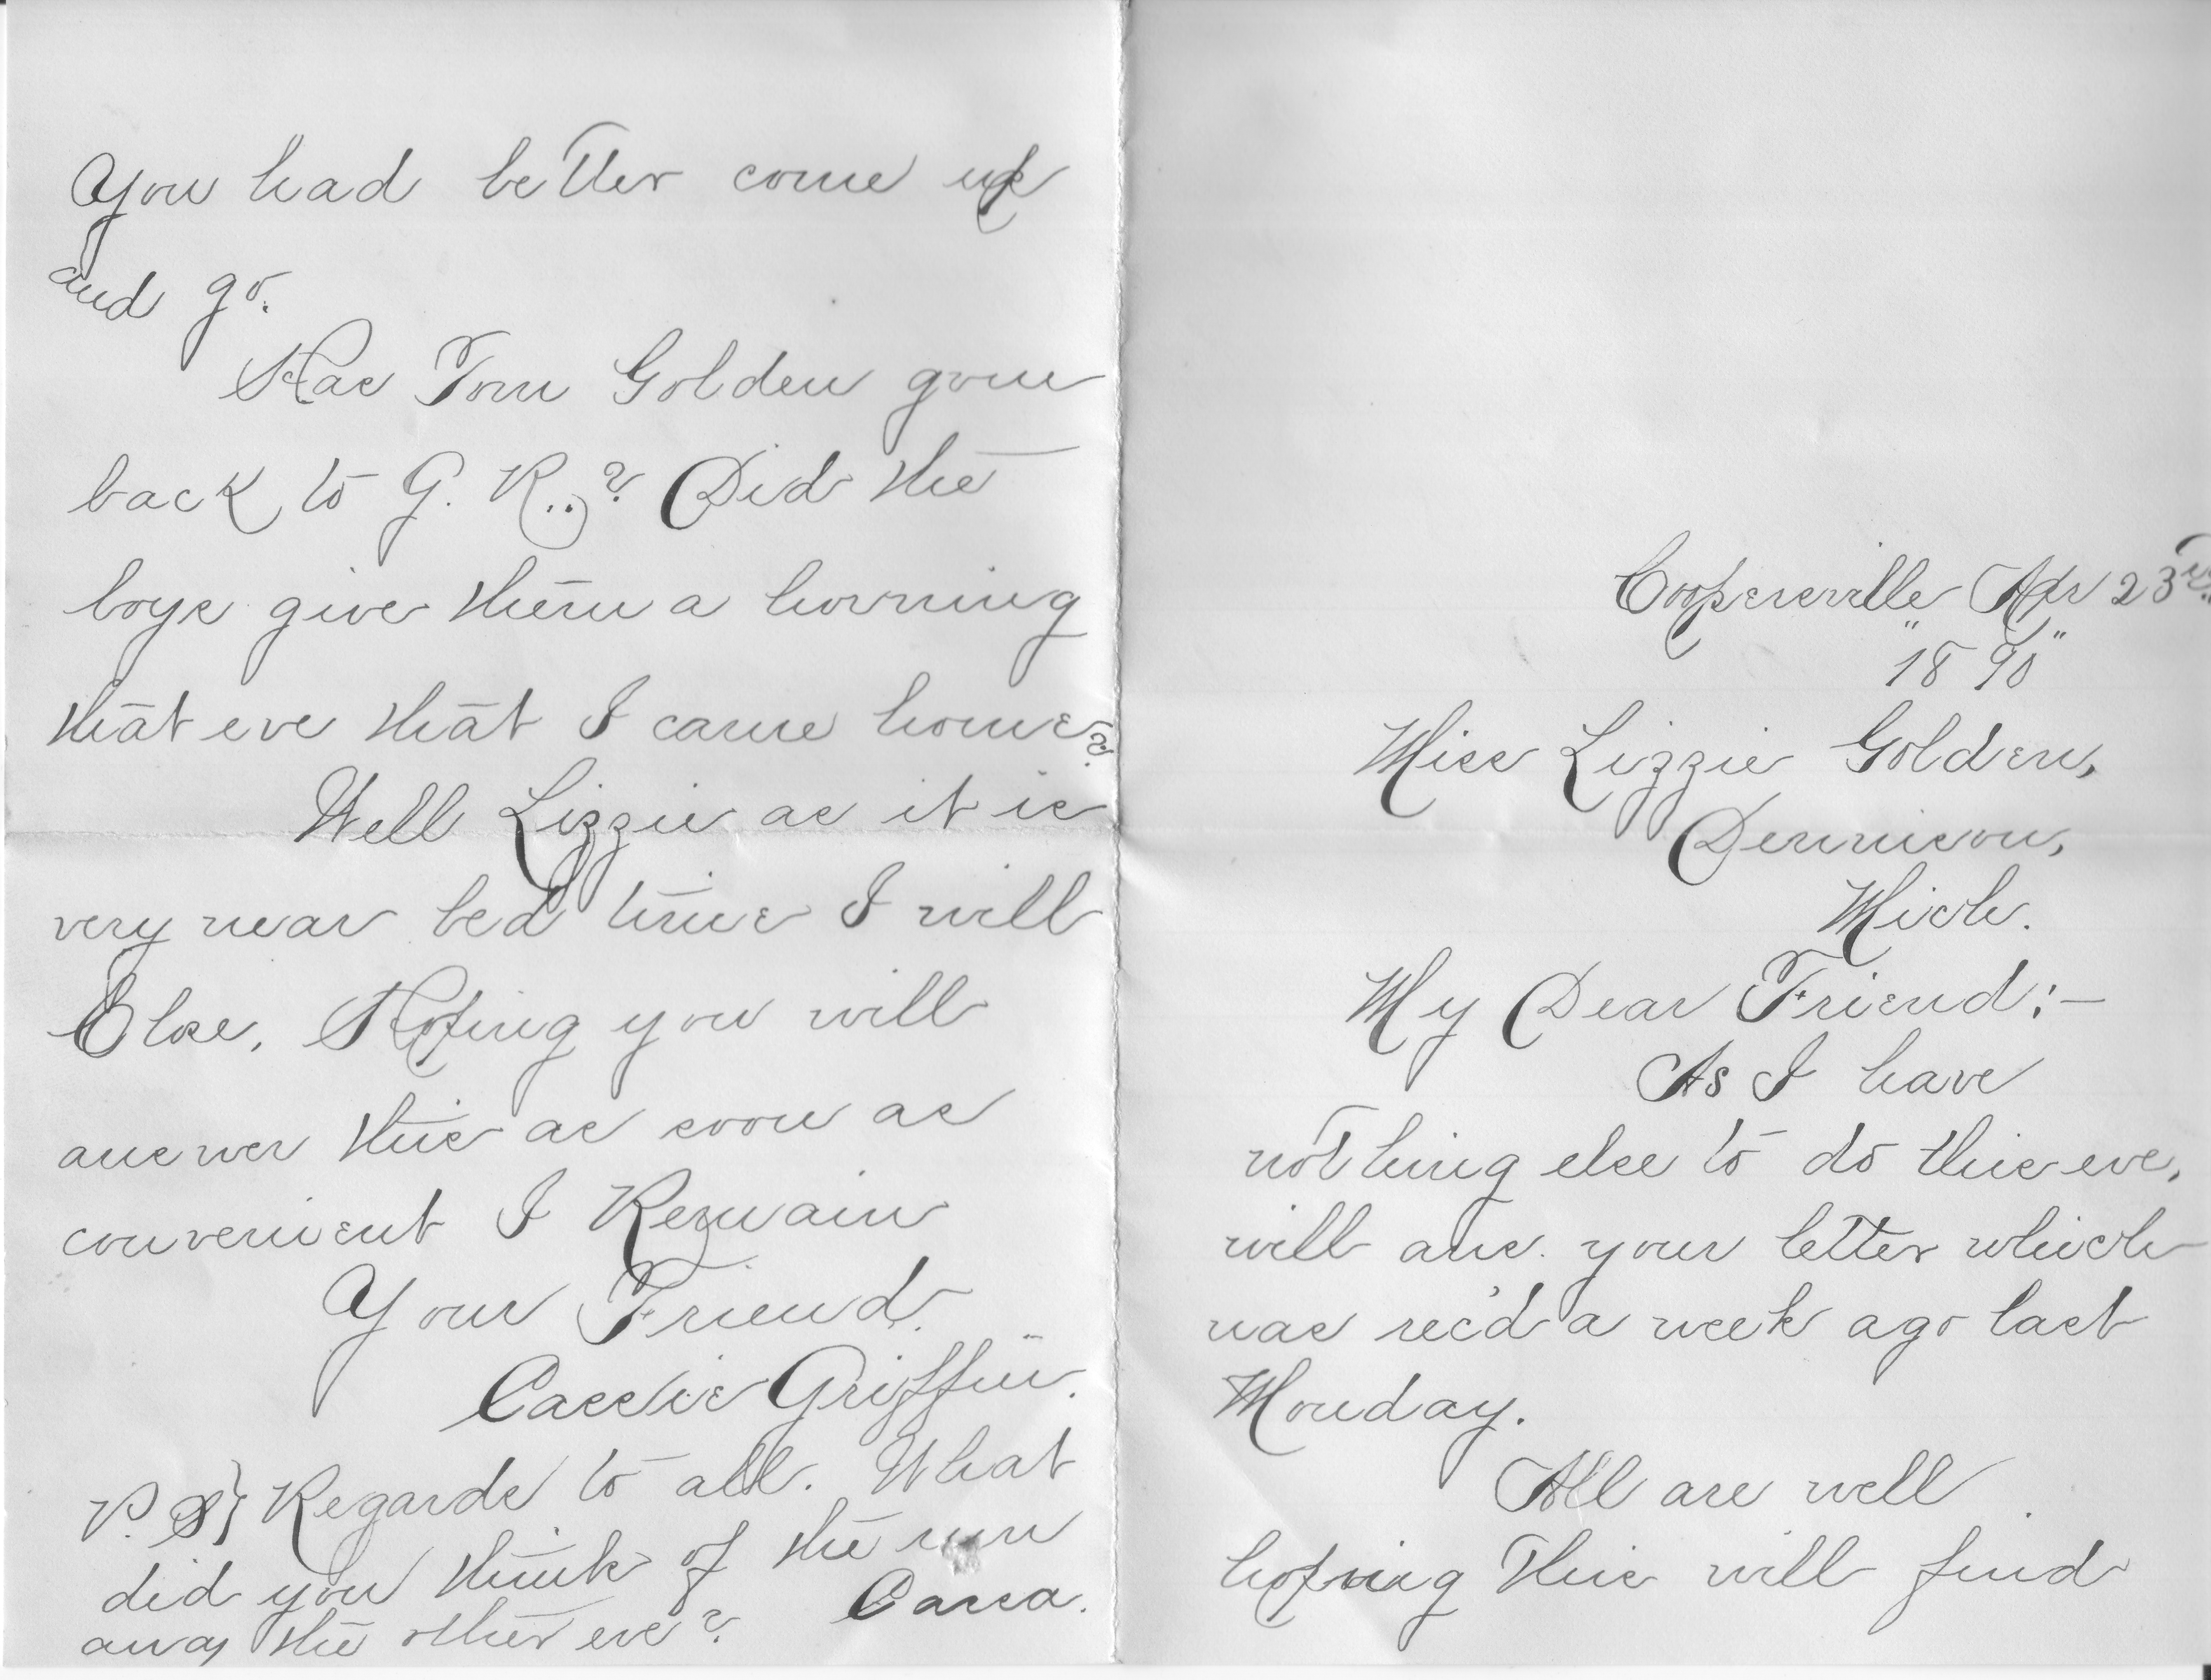 Coopersville Apr 23rd
"1890"
Miss Lizzie Golden,
Dennison,
Mich.
My Dear Friend:—
As I have
nothing else to do this eve,
will ans. your letter which
was rec'd a week ago last
Monday.
All are well
hoping This will find
You had better come up
and go.
Has Tom Golden gone
back to G. R..? Did the
boys give them a horning
that eve that I came home?
Well Lizzie as it is
very near bed time I will
Close, Hoping you will
answer this as soon as
convenient I Remain
Your Friend.
Cassie Griffin.
P. S} Regards to all. What
did you think of the run
away the other eve? Cassa.